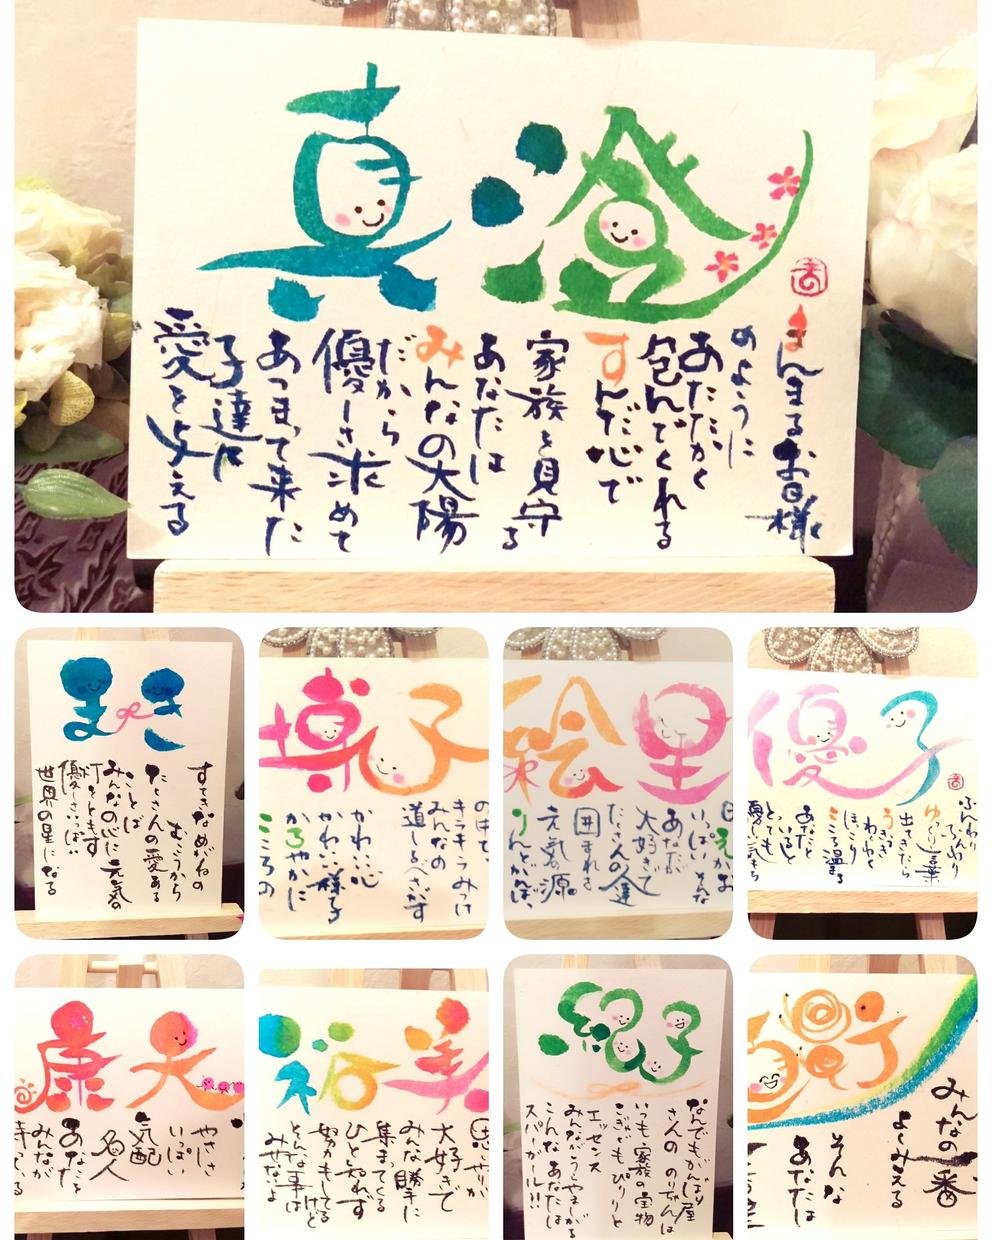 真澄
まんまるお日様
のように
あたたかく
包んでくれる
すんだ心で
家族を見守る
あなたは
みんなの太陽
だから
優しさ求めて
あつまって来た
子達に
愛を与える
まき
すてきなめがねの
むこうから
たくさんの愛ある
ことば
みんなの心に元気の
灯をともす
優しさいっぱい
世界の星になる
博子
キラキラみつけ
みんなの
道しるべさがす
かわいい心
かわいい様子
かろやかに
こころの
絵里
いっぱいそんな
あなたが
大好きで
たくさんの人達
囲まれる
元気の源
りんとかがば
優子
ふんわりふんわり
ゆっくり言葉
出てきたら
うきうき
わくわく
ほっこり
こころ温まる
あなたと
いると
とても
優しい気
康夫
やさしさ
いっぱい
気配
名人
あなたと
みんなが
裕美
思いやりが
大好きで
みんな勝手に
集まってくる
ひと知れず
努力もしてる
けど
そんな事は
みせないよ
なんでもがんばり屋
さんの のりちゃんは
いつも家族の宝物
とってもぴりりと
エッセンス
みんながうらやましがる
こんなあなたは
スーパーガール!!
みんなの一番
よくみえる
そんな
あなたは